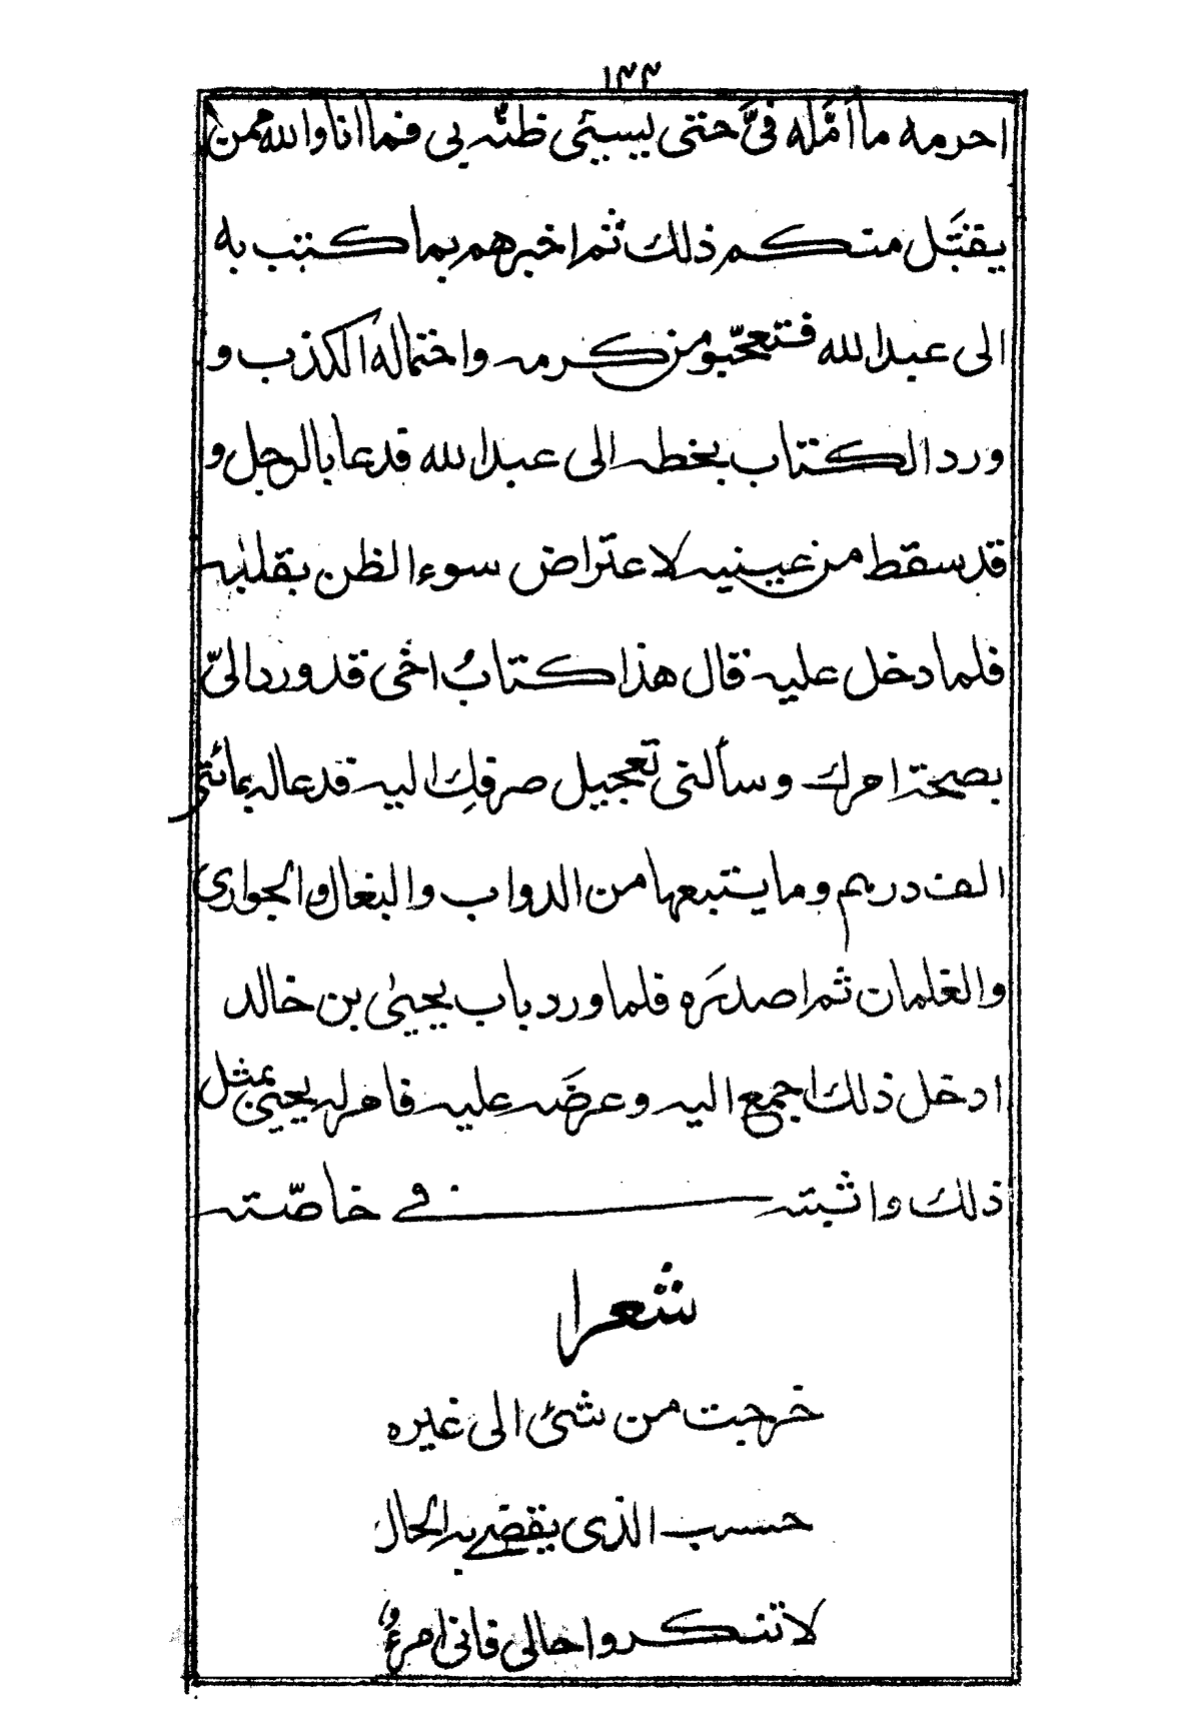 ١٣٣
احرمه ما امّله فيّ حتى يسيئى ظنّه بى فما انا والله ممن
يقبَل منكم ذلك ثم اخبرهم بما كتب به
الى عبد الله فتعجّبو من كرمه واحتماله الكذب و
ورد الكتاب بخطه الى عبد الله فدعا بالرجل و
قد سقط من عينيه لاعتراض سوء الظن بقلبه
فلما دخل عليه قال هذا كتابُ اخى قد ورد الىّ
بصحة امرك وسألنى تعجيل صرفك اليه فدعا له بمائتى
الف درهم وما يتبعها من الدواب والبغال والجوارى
والغلمان ثم اصدَره فلما ورد باب يحيىٰ بن خالد
ادخل ذلك اجمع اليه وعرضَه عليه فامر له يحيى بمثل
ذلك واثبته في خاصّته
شعرا
خرجت من شئ الى غيره
حسب الذى يقضي به الحال
لا تنكروا حالى فانى امرءٌ